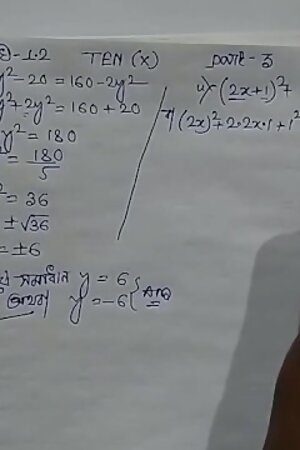 -1.2 TEN (X) part - 3
y²-20 = 160-2y²
y²+2y² = 160+20
y² = 180
= 180/5
= 36
= ±√36
= ±6
সমাধান y = 6
অথবা y = -6 } Ans
(2x+1)²+
(2x)²+2·2x·1+1²